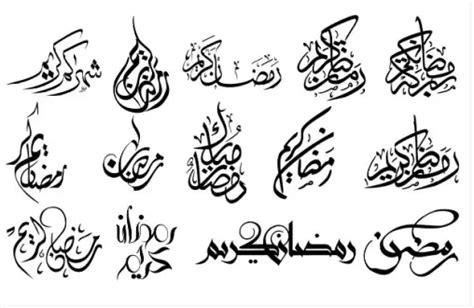 رمضان كريم
رمضان كريم
رمضان كريم
رمضان كريم
كريم
رمضان كريم
رمضان كريم
رمضان مبارك
رمضان
رمضان كريم
رمضان
رمضان كريم
رمضان
كريم
رمضان كريم